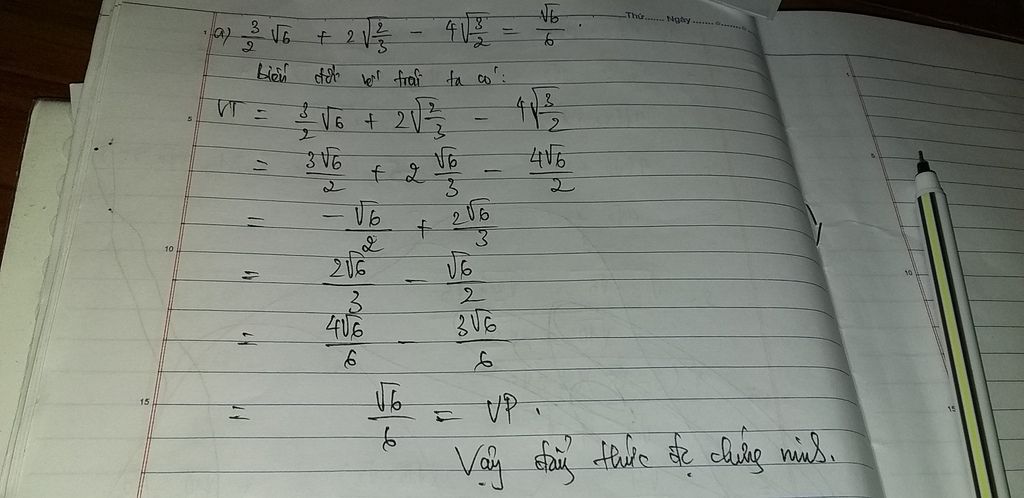 Thứ...... Ngày.......
a) \frac{3}{2}√6 + 2√\frac{2}{3} - 4√\frac{3}{2} = \frac{√6}{6}.
biến đổi vế trái ta có:
VT = \frac{3}{2}√6 + 2√\frac{2}{3} - 4√\frac{3}{2}
= \frac{3√6}{2} + 2\frac{√6}{3} - \frac{4√6}{2}
= \frac{-√6}{2} + \frac{2√6}{3}
= \frac{2√6}{3} - \frac{√6}{2}
= \frac{4√6}{6} - \frac{3√6}{6}
= \frac{√6}{6} = VP.
Vậy đẳng thức đc chứng minh.
5
10
15
5
10
15